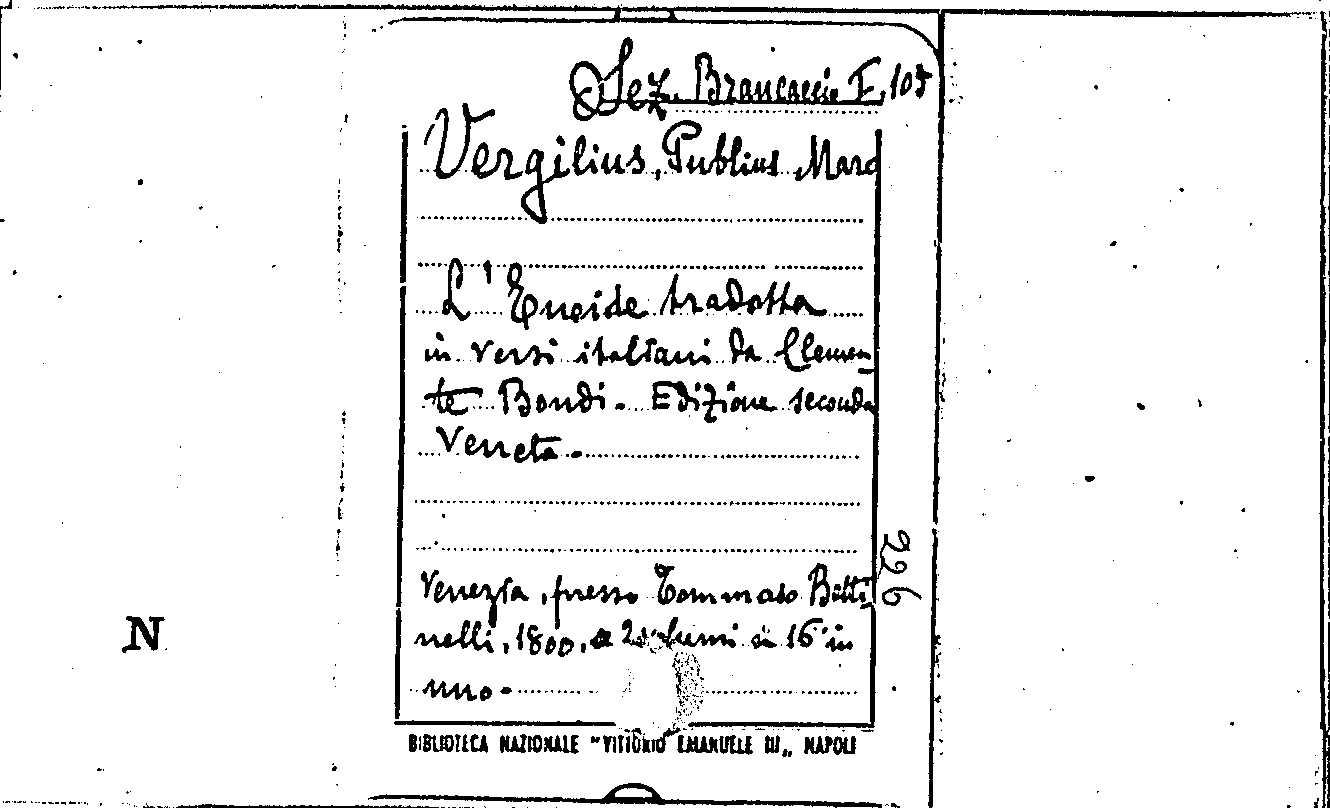 Sez. Brancaccio F, 105
Vergilius, Publius, Maro
L'Eneide tradotta
in versi italiani da Clemen-
te Bondi. Edizione seconda
Veneta.
Venezia, presso Tommaso Betti-
nelli, 1800, 2 volumi in 16° in
uno.
226
N
BIBLIOTECA NAZIONALE "VITTORIO EMANUELE III„ NAPOLI